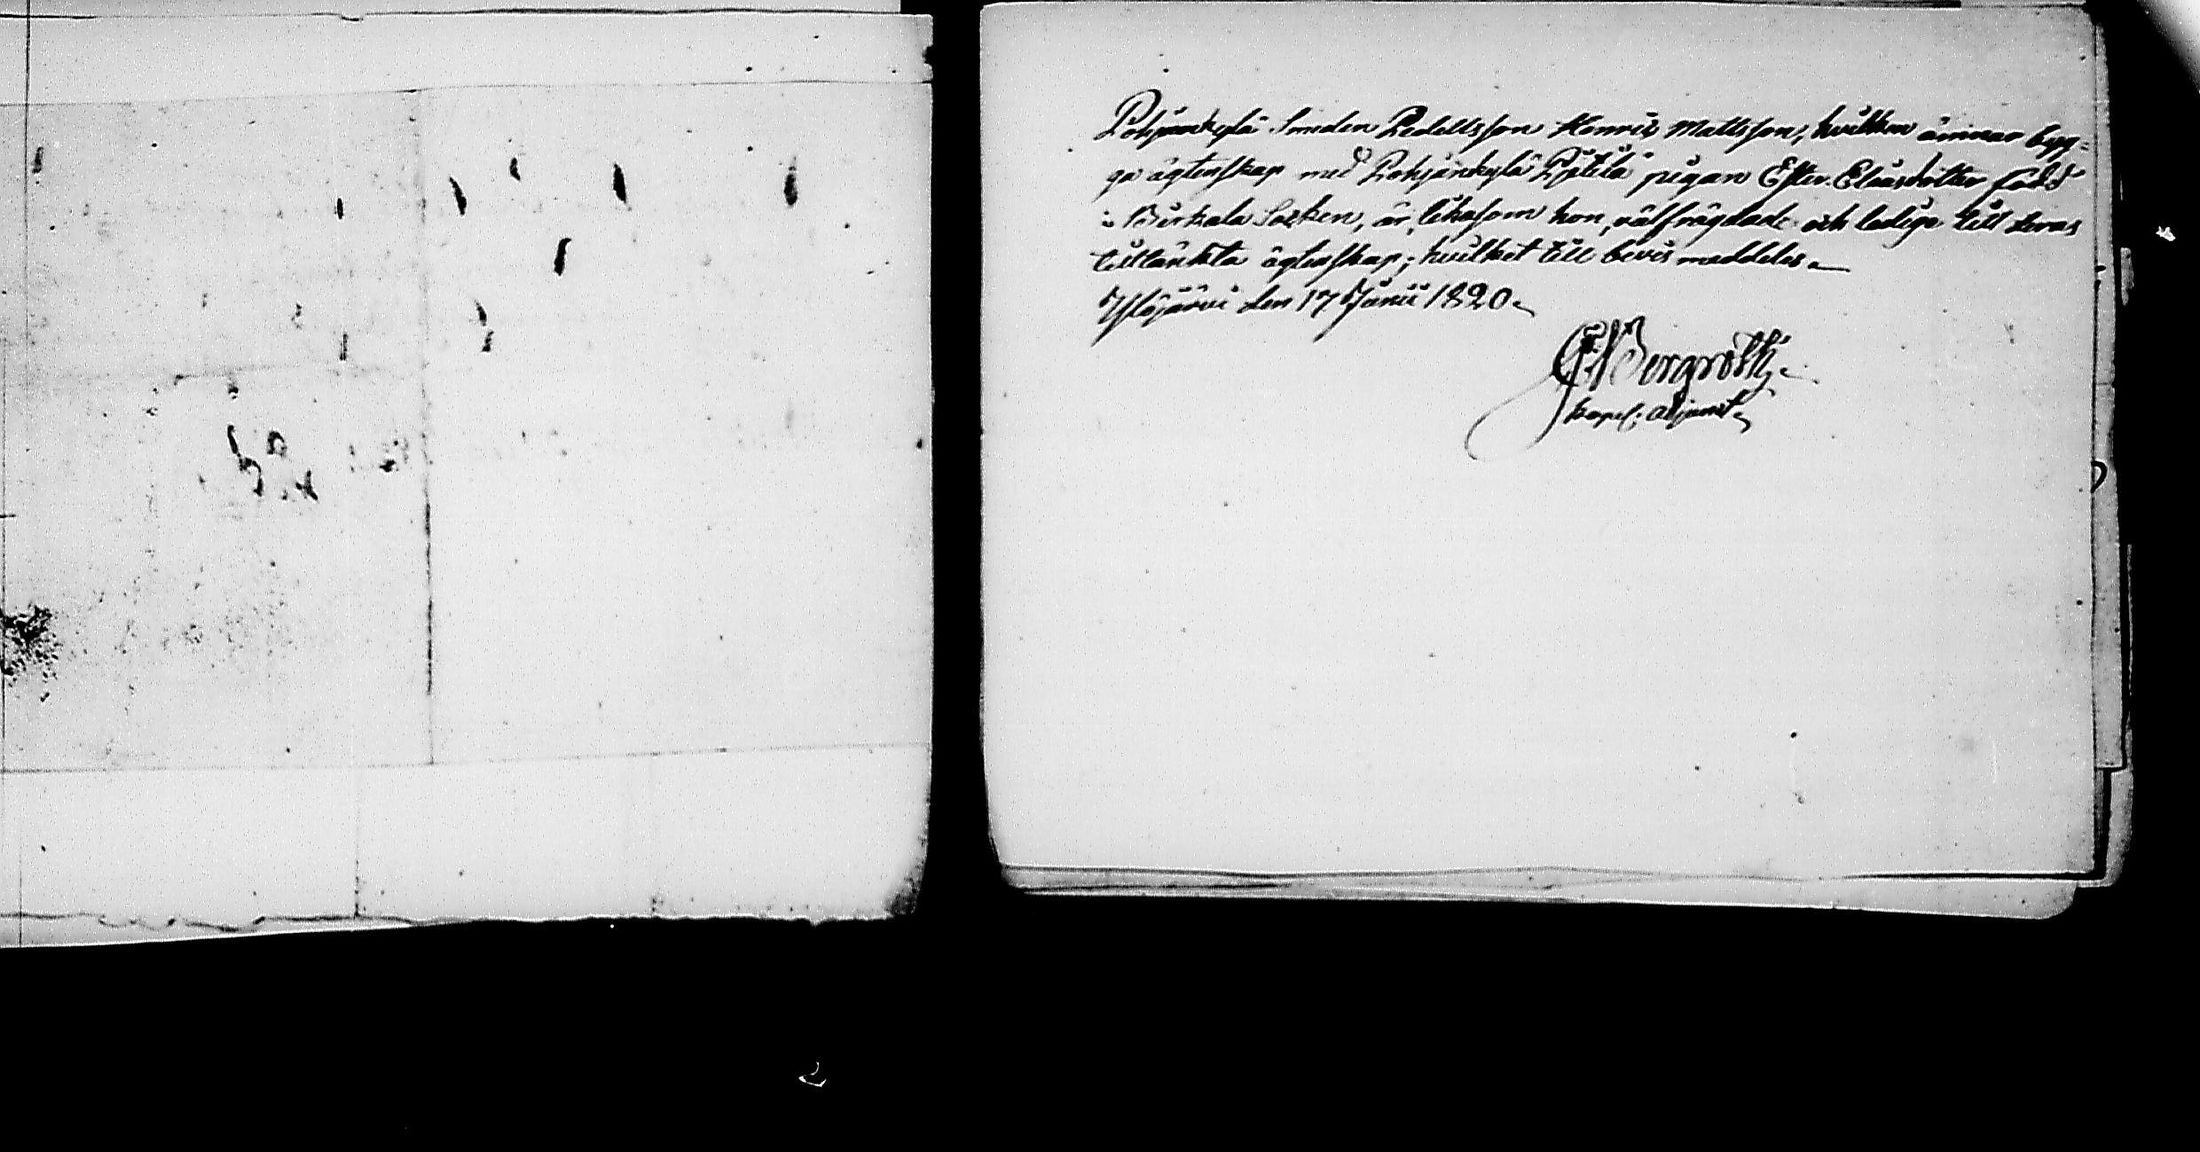 Pohjankylä Smeden Zedellsson Henric Mattsson, hvilken ämnar byg=
ga ägtenskap med Pohjankylä Pijtilä pigan Ester Eliasdotter född
i Birkala Socken, är, likasom hon, välfrägdade och lediga till deras
tilltänkta ägtenskap; hvilket till bevis meddeles.
Ylöjärvi den 17 Junii 1820.
Bergroth.
kapel. adjunct.